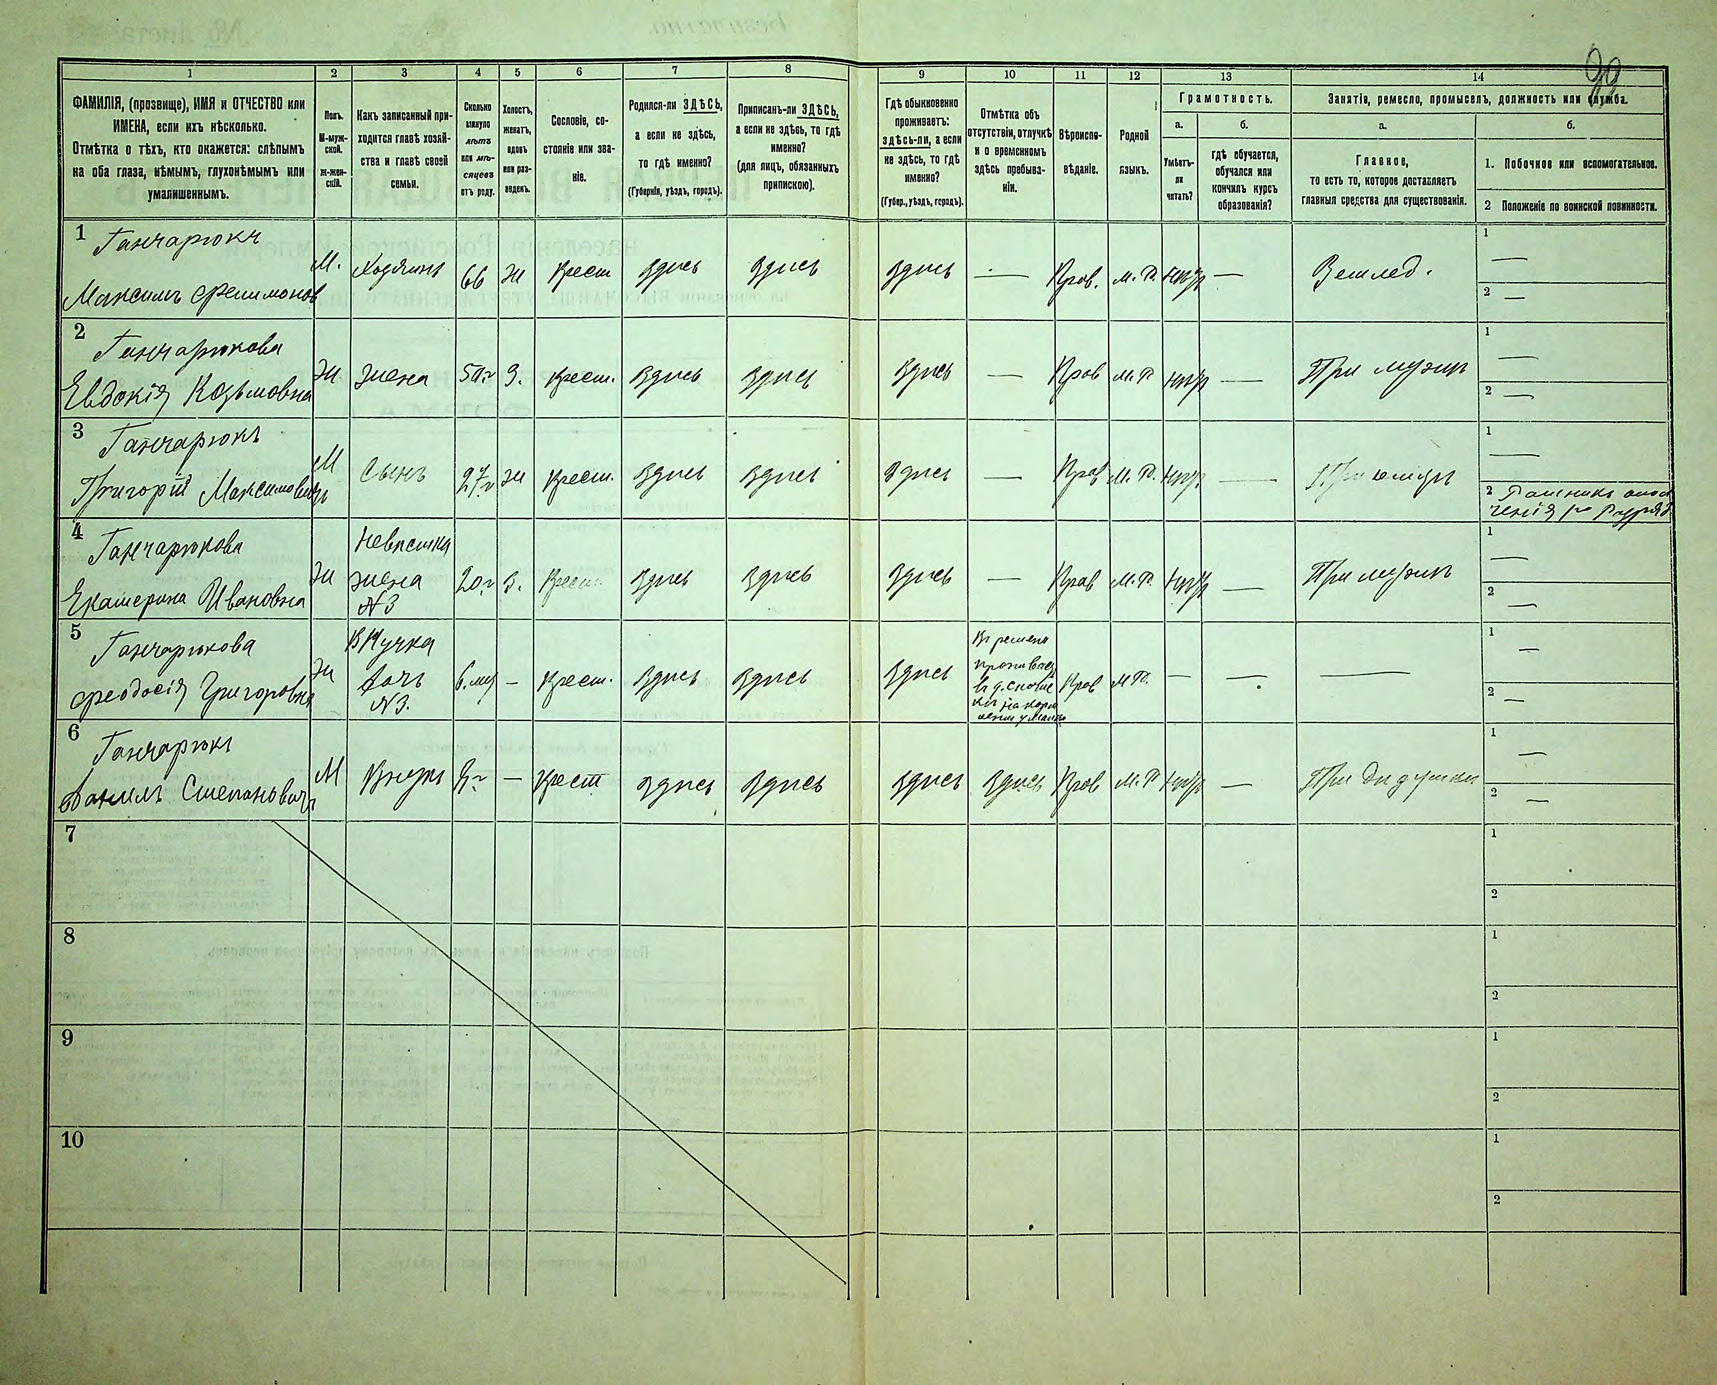 99
1 2 3 4 5 6 7 8 9 10 11 12 13 14
ФАМИЛІЯ, (прозвище), ИМЯ и ОТЧЕСТВО или
ИМЕНА, если ихъ нѣсколько.
Отмѣтка о тѣхъ, кто окажется: слѣпымъ
на оба глаза, нѣмымъ, глухонѣмымъ или
умалишеннымъ.
Полъ.
М-муж-
ской.
Ж-жен-
скій.
Какъ записанный при-
ходится главѣ хозяй-
ства и главѣ своей
семьи.
Сколько
минуло
лѣтъ
или мѣ-
сяцевъ
отъ роду.
Холостъ,
женатъ,
вдовъ
или раз-
веденъ.
Сословіе, со-
стояніе или зва-
ніе.
Родился-ли ЗДѢСЬ,
а если не здѣсь,
то гдѣ именно?
(Губернія, уѣздъ, городъ).
Приписанъ-ли ЗДѢСЬ,
а если не здѣсь, то гдѣ
именно?
(для лицъ, обязанныхъ
припискою).
Гдѣ обыкновенно
проживаетъ:
здѣсь-ли, а если
не здѣсь, то гдѣ
именно?
(Губер., уѣздъ, городъ).
Отмѣтка объ
отсутствіи, отлучкѣ
и о временномъ
здѣсь пребыва-
ніи.
Вѣроиспо-
вѣданіе.
Родной
языкъ.
Грамотность.
а.
Умѣетъ-
ли
читать?
б.
гдѣ обучается,
обучался или
кончилъ курсъ
образованія?
Занятія, ремесло, промыселъ, должность или служба.
а.
Главное,
то есть то, которое доставляетъ
главныя средства для существованія.
б.
1. Побочное или вспомогательное.
2 Положеніе по воинской повинности.
1 Ганчарюкъ
Максимъ Филимонов М. Хозяинъ 66 Ж Крест Здѣсь Здѣсь Здѣсь — Прав. М. Р. нѣтъ — Землед. 1 — 2 —
2 Ганчарюкова
Евдокія Козьмовна Ж жена 50г З. Крест. Здѣсь Здѣсь Здѣсь — Прав М. Р. нѣтъ — При мужѣ 1 — 2 —
3 Ганчарюкъ
Григорій Максимовичъ М Сынъ 27г Ж Крест. Здѣсь Здѣсь Здѣсь — Прав М. Р. нѣтъ — При отцѣ 1 — 2 Ратникъ опол
ченія 1го разряд
4 Ганчарюкова
Екатерина Ивановна Ж Невѣстка
жена
N3 20г З. Крест. Здѣсь Здѣсь Здѣсь — Прав М. Р. нѣтъ — При мужѣ 1 — 2 —
5 Ганчарюкова
Феодосія Григоровна Ж Внучка
дочь
N3. 6.мѣ — Крест. Здѣсь Здѣсь Здѣсь Прав М Р. — — — 1 — 2 —
6 Ганчарюкъ
Данилъ Степановичъ М Внукъ 8г — Крест Здѣсь Здѣсь Здѣсь Здѣсь Прав М. Р нѣтъ — При дѣдушкѣ 1 — 2 —
7 1 2
8 1 2
9 1 2
10 1 2